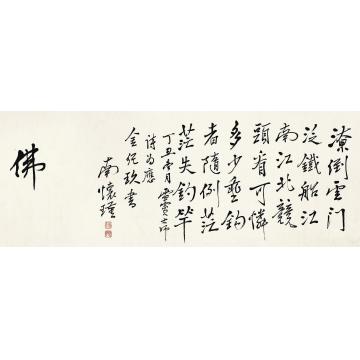 潦倒雲門
泛鐵船江
南江北競
頭看可憐
多少垂鈎
者隨例茫
茫失釣竿
丁丑杏月雪竇士師
詩为應
金纪玖書
南懷瑾
佛